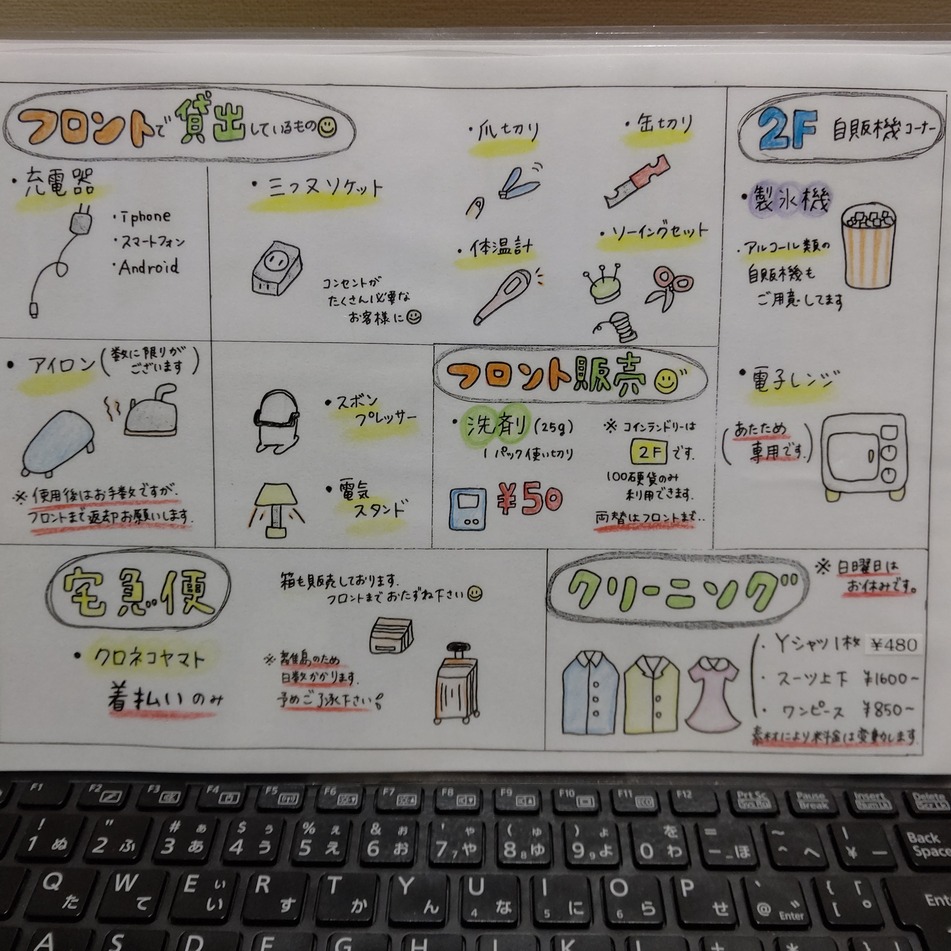 フロントで貸出しているもの
・充電器
・iphone
・スマートフォン
・Android
・三つ又ソケット
コンセントが
たくさん必要な
お客様に
・爪切り
・缶切り
・体温計
・ソーイングセット
2F 自販機コーナー
・製氷機
・アルコール類の
自販機も
ご用意してます
・電子レンジ
(あたため
専用です。)
・アイロン(数に限りが
ございます)
※使用後はお手数ですが、
フロントまで返却お願いします。
・ズボン
プレッサー
・電気
スタンド
フロント販売
・洗剤(25g)
1パック使い切り
¥50
※コインランドリーは
2Fです。
100硬貨のみ
利用できます。
両替はフロントまで..
宅急便
・クロネコヤマト
着払いのみ
箱も販売しております。
フロントまでおたずね下さい
※離島のため
日数かかります。
予めご了承下さい
クリーニング
※日曜日は
お休みです。
・Yシャツ1枚 ¥480
・スーツ上下 ¥1600~
・ワンピース ¥850~
素材により料金は変動します。
F1
F2
F3
F4
F5
F6
F7
F8
F9
F10
F11
F12
Prt Sc
Pause
Break
Insert
Delete
! 1 ぬ
" 2 ふ
# 3 ぁ あ
$ 4 ぅ う
% 5 ぇ え
& 6 ぉ お
' 7 ゃ や 7
( 8 ゅ ゆ 8
) 9 ょ よ 9
0 を わ
= - ほ
~ ^ へ
| ¥ ー
Back
Space
Q た
W て
E ぃ い
R す
T か
Y ん
U な 4
I に 5
O ら 6
P せ
` @ ゛ Enter
{ [ 「 ゜
Ent
A
S
D
F
G
H
J
K
L